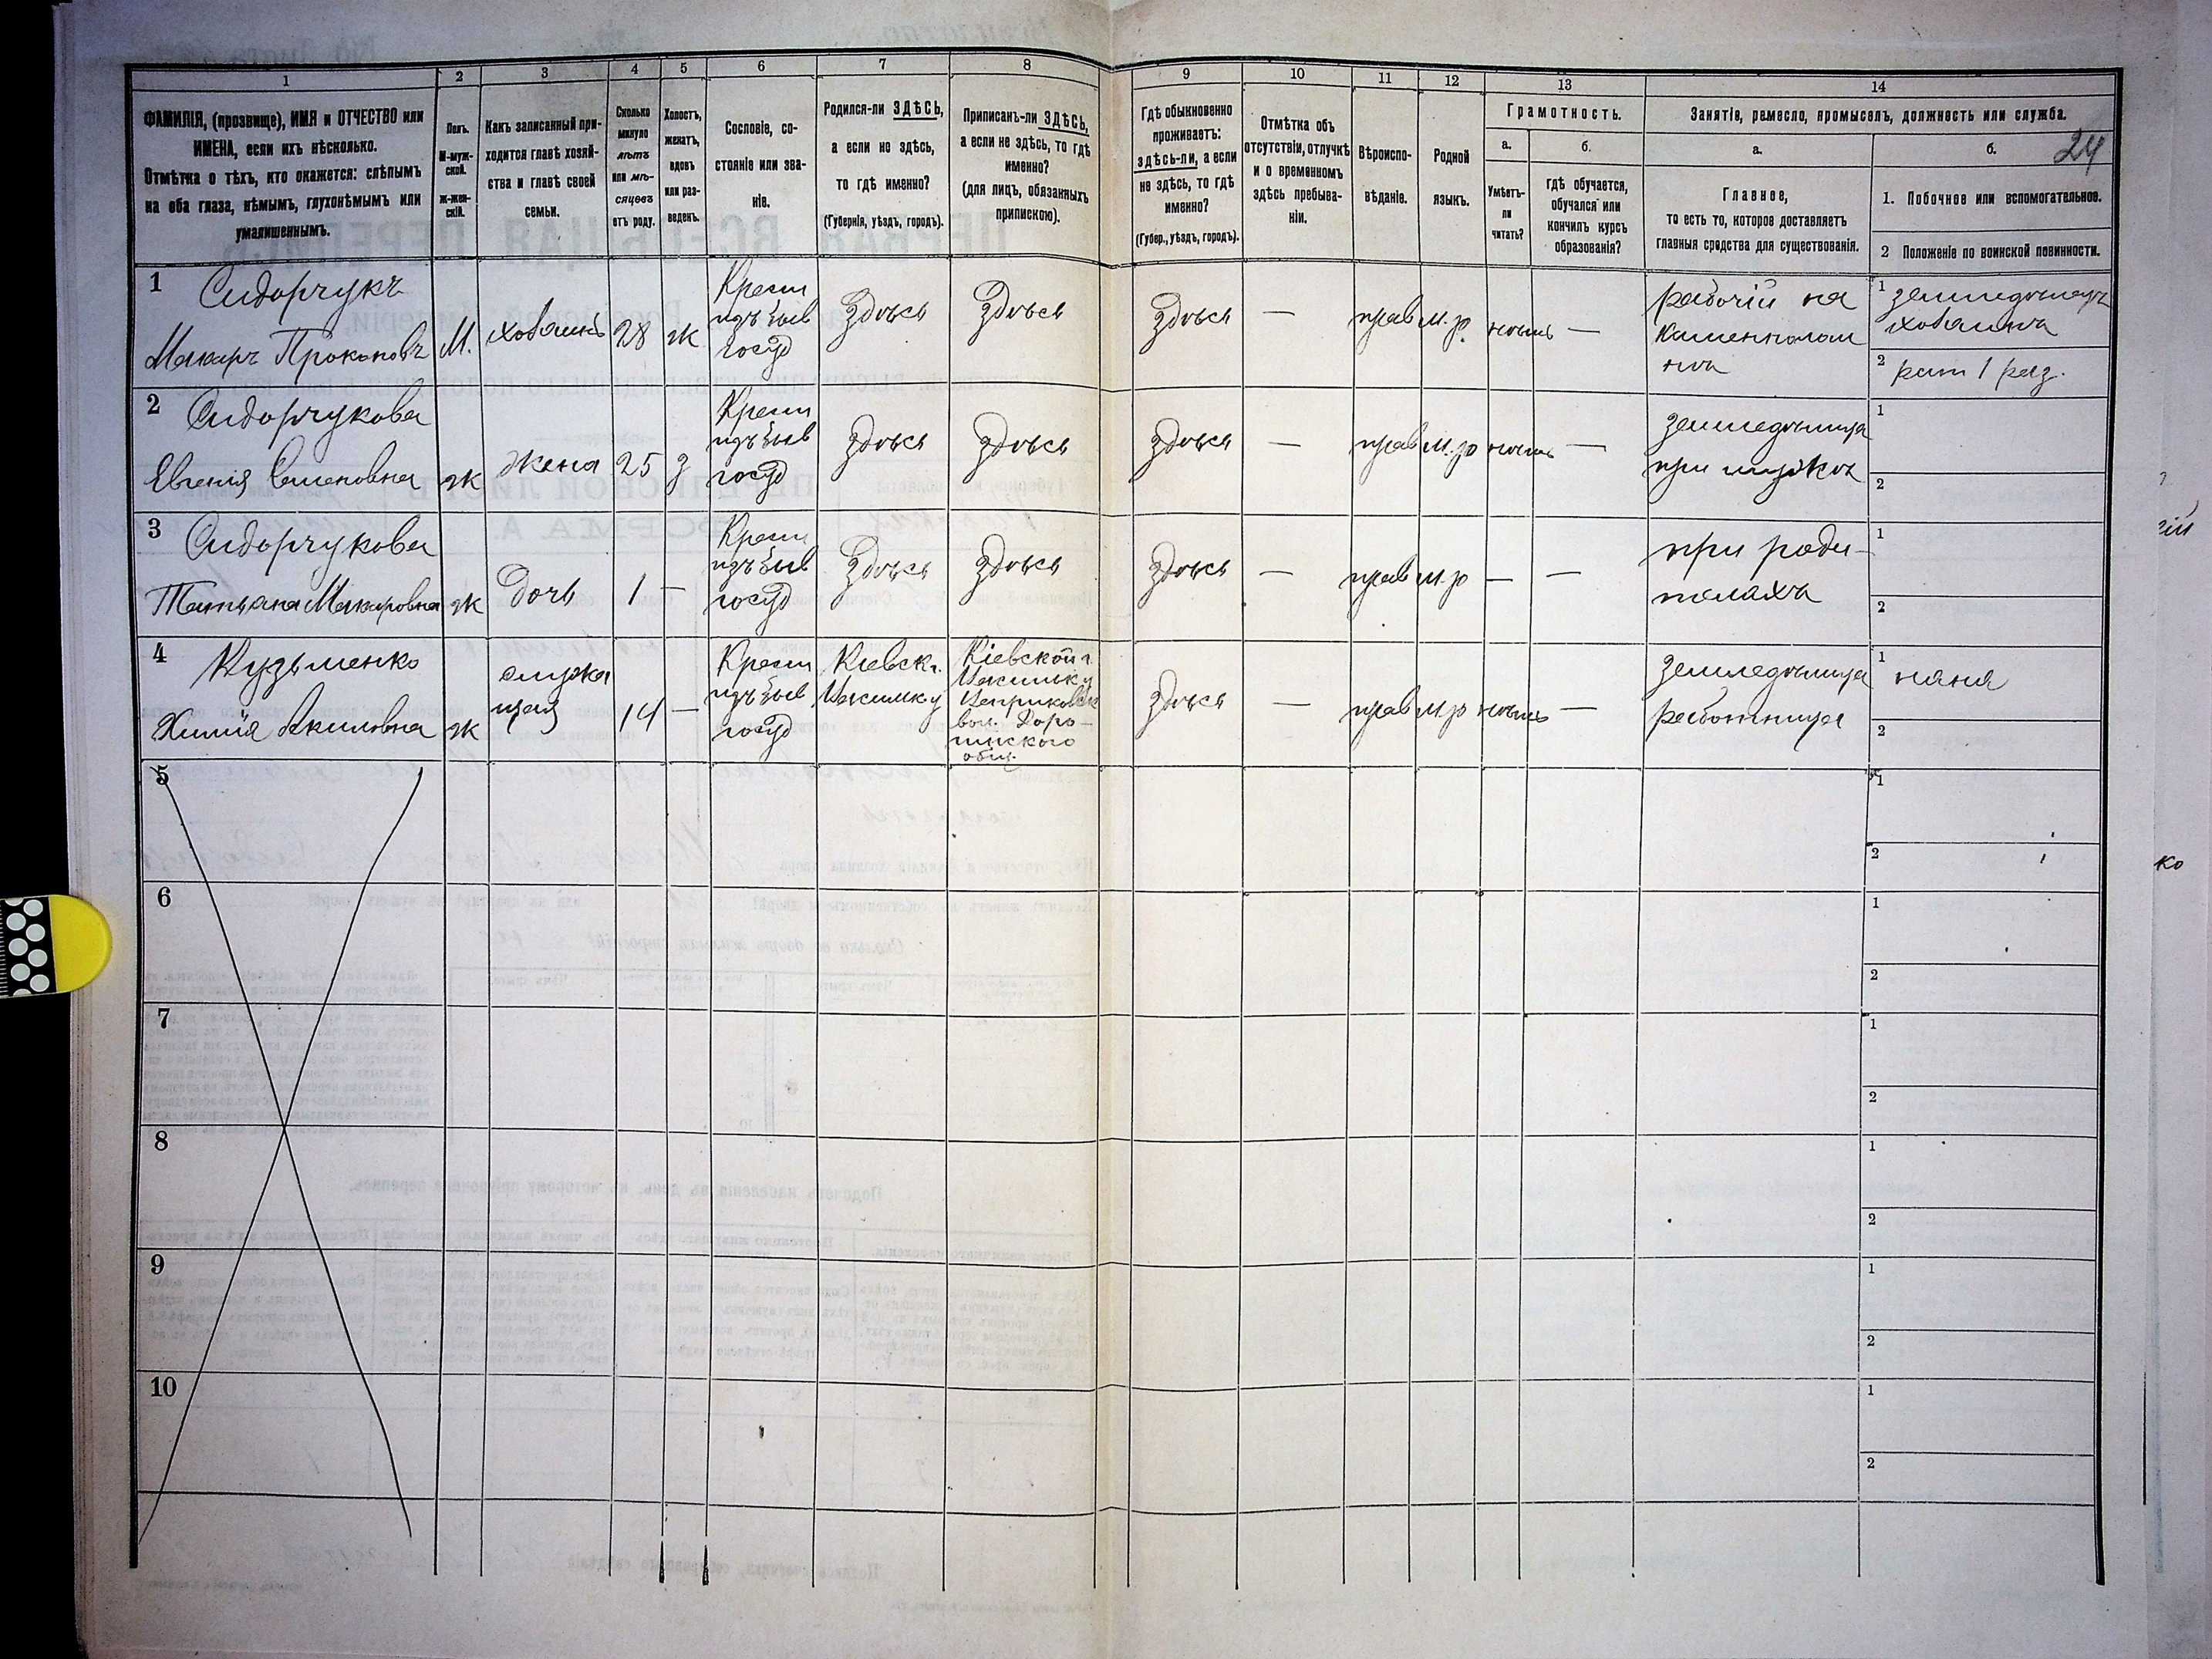 1 2 3 4 5 6 7 8 9 10 11 12 13 14
ФАМИЛІЯ, (прозвище), ИМЯ и ОТЧЕСТВО или
ИМЕНА, если ихъ нѣсколько.
Отмѣтка о тѣхъ, кто окажется: слѣпымъ
на оба глаза, нѣмымъ, глухонѣмымъ или
умалишеннымъ.
Полъ.
М-муж-
ской.
Ж-жен-
скій.
Какъ записанный при-
ходится главѣ хозяй-
ства и главѣ своей
семьи.
Сколько
минуло
лѣтъ
или мѣ-
сяцевъ
отъ роду.
Холостъ,
женатъ,
вдовъ
или раз-
веденъ.
Сословіе, со-
стояніе или зва-
ніе.
Родился-ли ЗДѢСЬ,
а если не здѣсь,
то гдѣ именно?
(Губернія, уѣздъ, городъ).
Приписанъ-ли ЗДѢСЬ,
а если не здѣсь, то гдѣ
именно?
(для лицъ, обязанныхъ
припискою).
Гдѣ обыкновенно
проживаетъ:
здѣсь-ли, а если
не здѣсь, то гдѣ
именно?
(Губер., уѣздъ, городъ).
Отмѣтка объ
отсутствіи, отлучкѣ
и о временномъ
здѣсь пребыва-
ніи.
Вѣроиспо-
вѣданіе.
Родной
языкъ.
Грамотность.
а.
Умѣетъ-
ли
читать?
б.
Гдѣ обучается,
обучался или
кончилъ курсъ
образованія?
Занятіе, ремесло, промыселъ, должность или служба.
а.
Главное,
то есть то, которое доставляетъ
главныя средства для существованія.
б.
24
1. Побочное или вспомогательное.
2 Положеніе по воинской повинности.
1
Сидорчукъ
Макаръ Прокоповъ
М.
хозяинъ
28
ж
Крест
изъ быв
госуд
Здѣсь
Здѣсь
Здѣсь
—
прав
м.р.
нѣтъ
—
рабочій на
каменолом
нѣ
1 земледѣлецъ
хозяинъ
2 рат 1 раз.
2
Сидорчукова
Евгенія Семеновна
ж
Жена
25
з
Крест
изъ быв
госуд
Здѣсь
Здѣсь
Здѣсь
—
прав
м.р
нѣтъ
—
земледѣлица
при мужѣ
1
2
3
Сидорчукова
Татьяна Макаровна
ж
Дочь
1
—
Крест
изъ быв
госуд
Здѣсь
Здѣсь
Здѣсь
—
прав
м.р
—
—
при роди-
теляхъ
1
2
4
Кузьменко
Химія Акиловна
ж
служа
щая
14
—
Крест
изъ быв
госуд
Кіевск г.
Кіевской г.
вол.
общ.
Здѣсь
—
прав
м.р
нѣтъ
—
земледѣлица
работница
1 няня
2
5
1
2
6
1
2
7
1
2
8
1
2
9
1
2
10
1
2